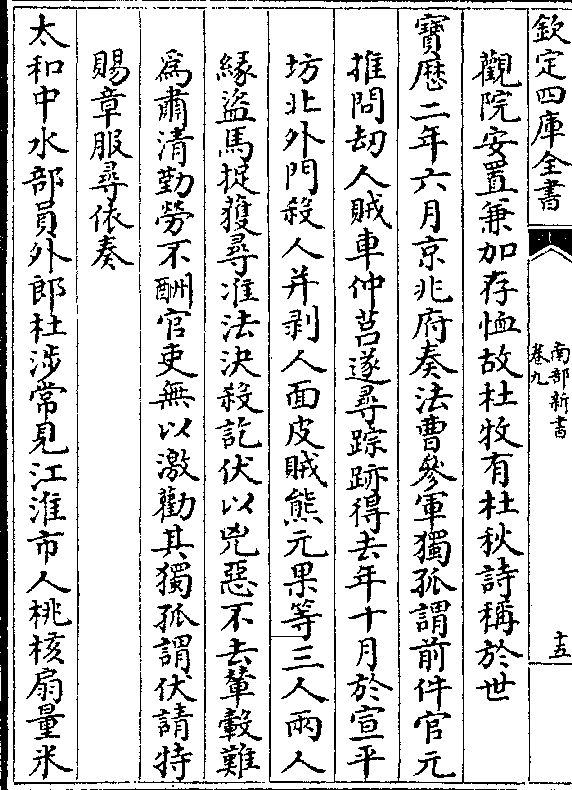 欽定四庫全書
南部新書
卷九
十五
觀院安置兼加存恤故杜牧有杜秋詩稱於世
寶歴二年六月京兆府奏法曹參軍獨孤謂前件官元
推問刼人賊車仲莒遂尋踪跡得去年十月於宣平
坊北外門殺人并剥人面皮賊熊元果等三人兩人
緣盜馬捉獲尋准法決殺訖伏以兇惡不去輦轂難
為肅清勤勞不酬官吏無以激勸其獨孤謂伏請特
賜章服尋依奏
太和中水部員外郎杜涉常見江淮市人桃核扇量米